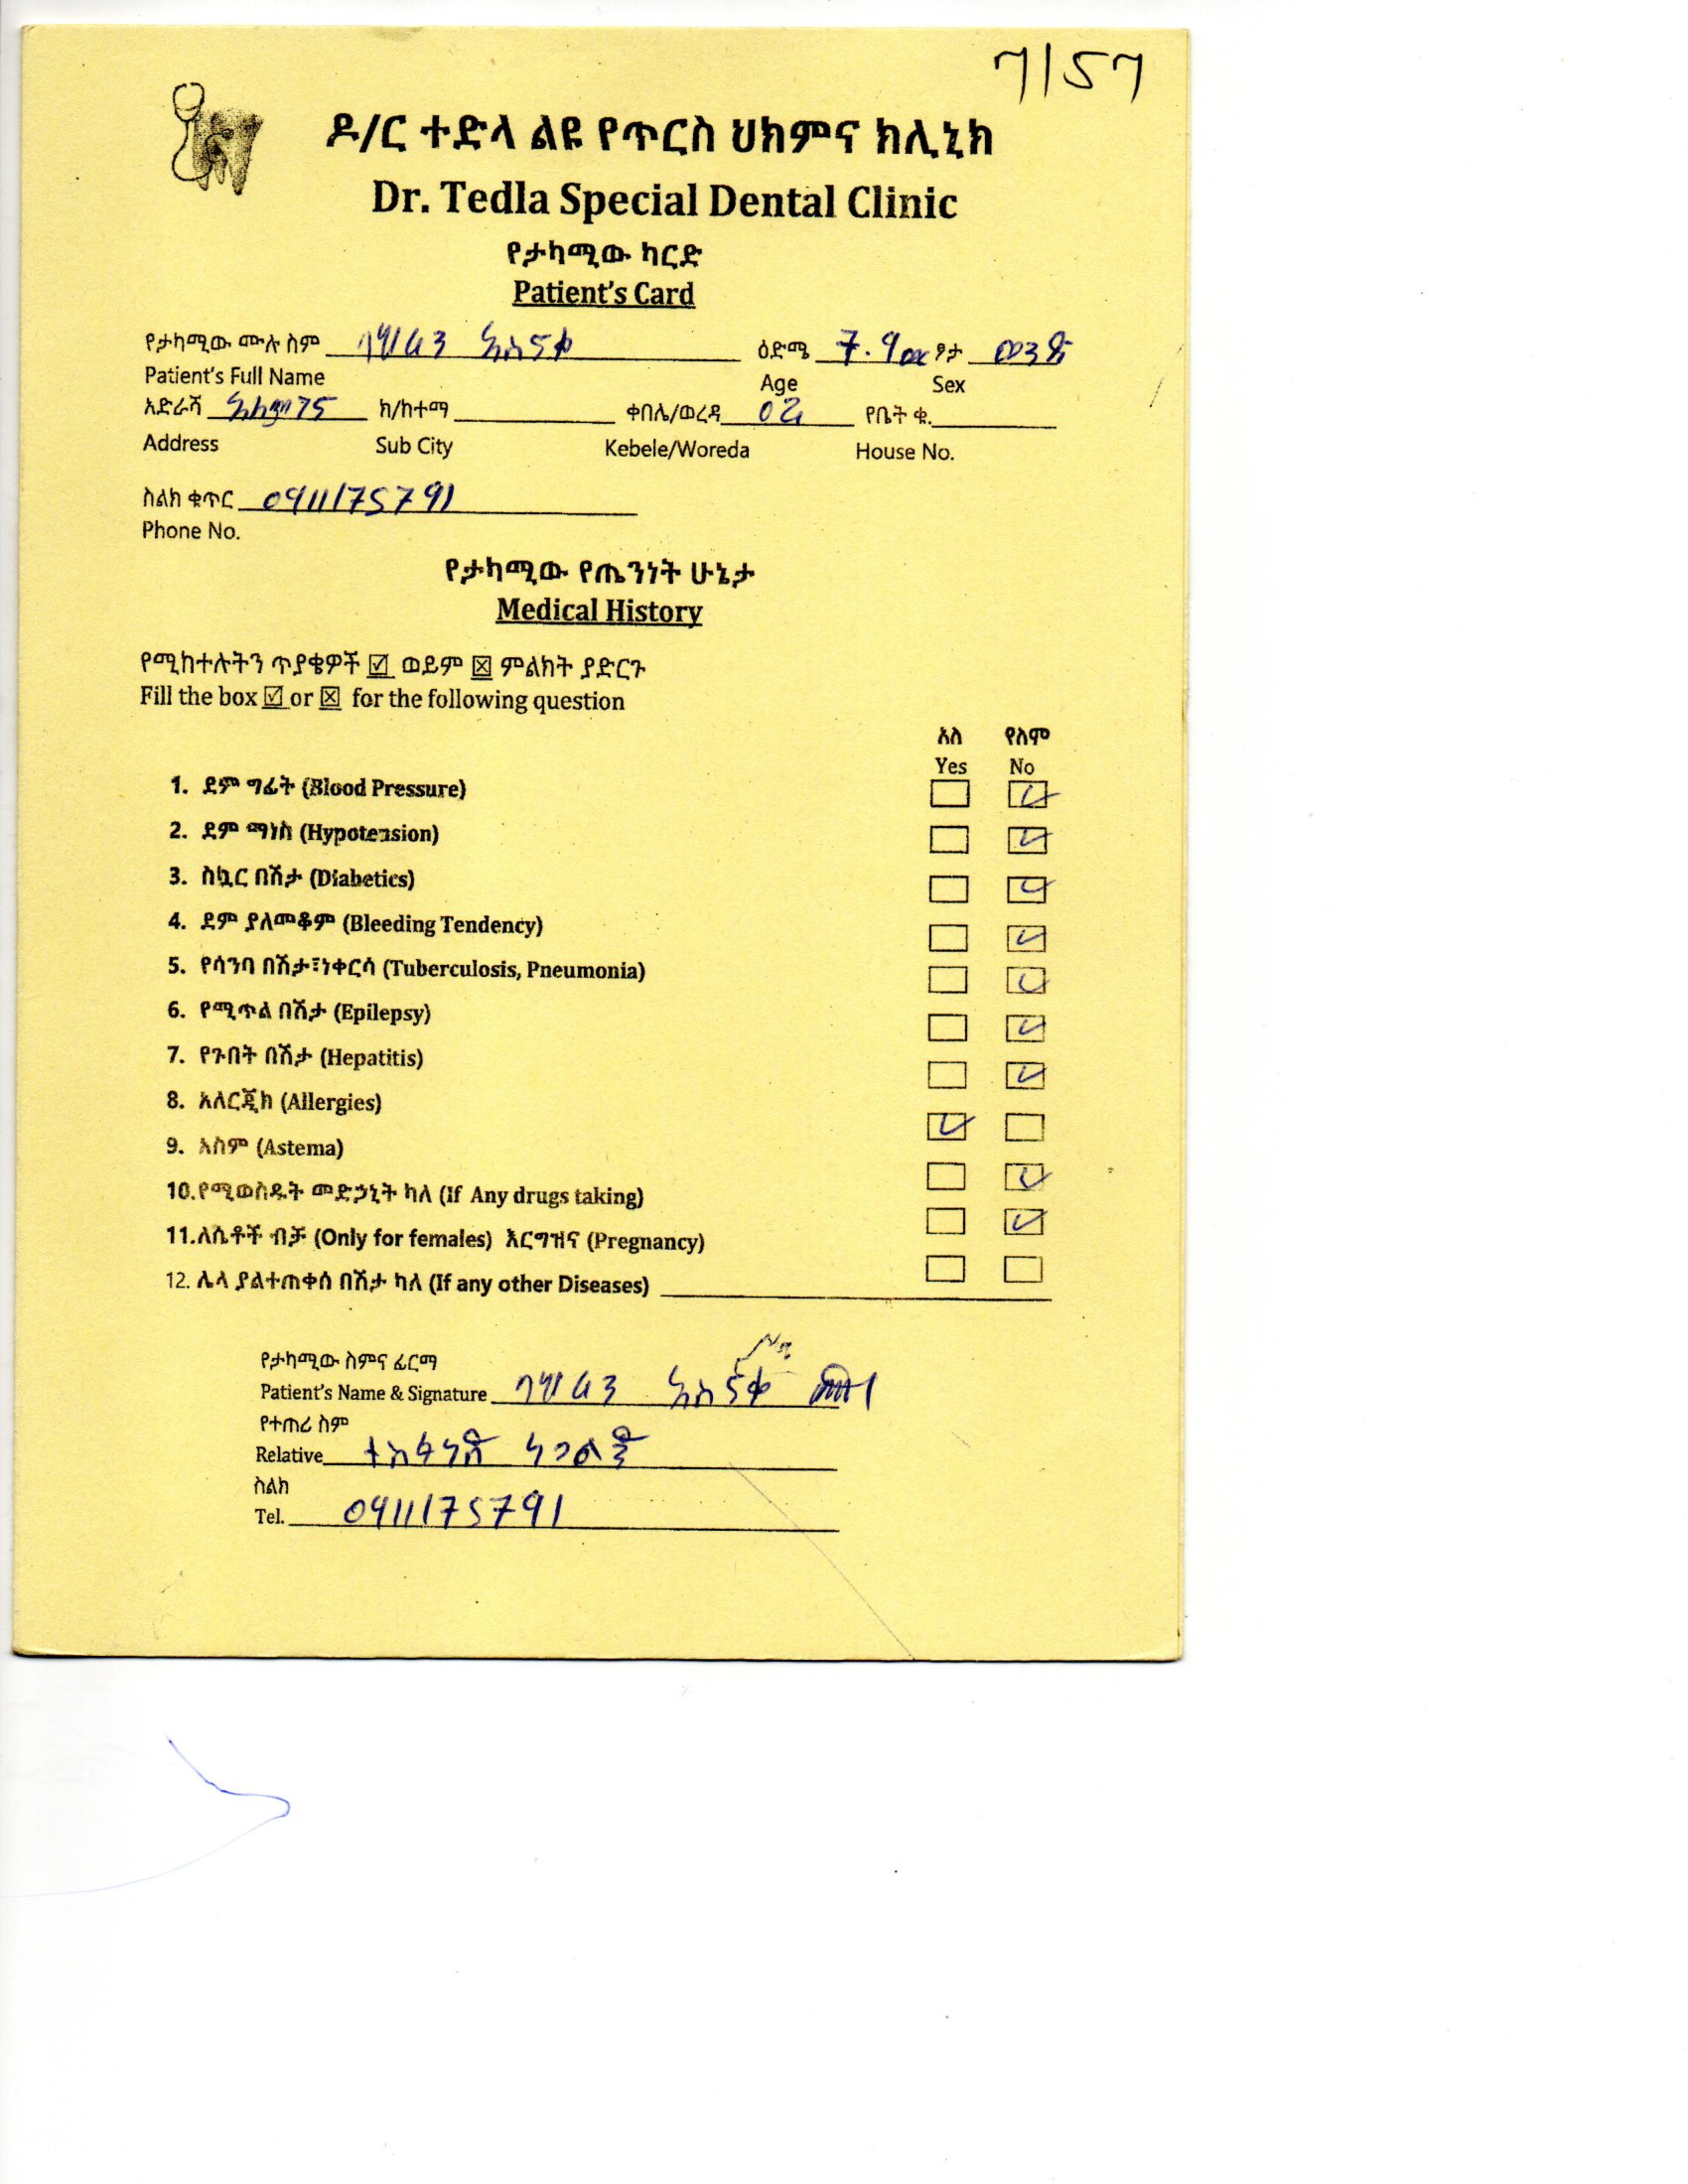 7157
ዶ/ር ተድላ ልዩ የጥርስ ህክምና ክሊኒክ
Dr. Tedla Special Dental Clinic
የታካሚው ካርድ
Patient's Card
የታካሚው ሙሉ ስም ዕድሜ ፆታ ወንድ
Patient's Full Name Age Sex
አድራሻ ክ/ከተማ ቀበሌ/ወረዳ የቤት ቁ.
Address Sub City Kebele/Woreda House No.
ስልክ ቁጥር 0911175791
Phone No.
የታካሚው የጤንነት ሁኔታ
Medical History
የሚከተሉትን ጥያቄዎች ☑ ወይም ☒ ምልክት ያድርጉ
Fill the box ☑ or ☒ for the following question
አለ የለም
Yes No
1. ደም ግፊት (Blood Pressure)
2. ደም ማነስ (Hypotension)
3. ስኳር በሽታ (Diabetics)
4. ደም ያለመቆም (Bleeding Tendency)
5. የሳንባ በሽታ፣ነቀርሳ (Tuberculosis, Pneumonia)
6. የሚጥል በሽታ (Epilepsy)
7. የጉበት በሽታ (Hepatitis)
8. አለርጂክ (Allergies)
9. አስም (Astema)
10.የሚወስዱት መድኃኒት ካለ (If Any drugs taking)
11.ለሴቶች ብቻ (Only for females) እርግዝና (Pregnancy)
12. ሌላ ያልተጠቀሰ በሽታ ካለ (If any other Diseases)
የታካሚው ስምና ፊርማ
Patient's Name & Signature
የተጠሪ ስም
Relative
ስልክ
Tel. 0911175791